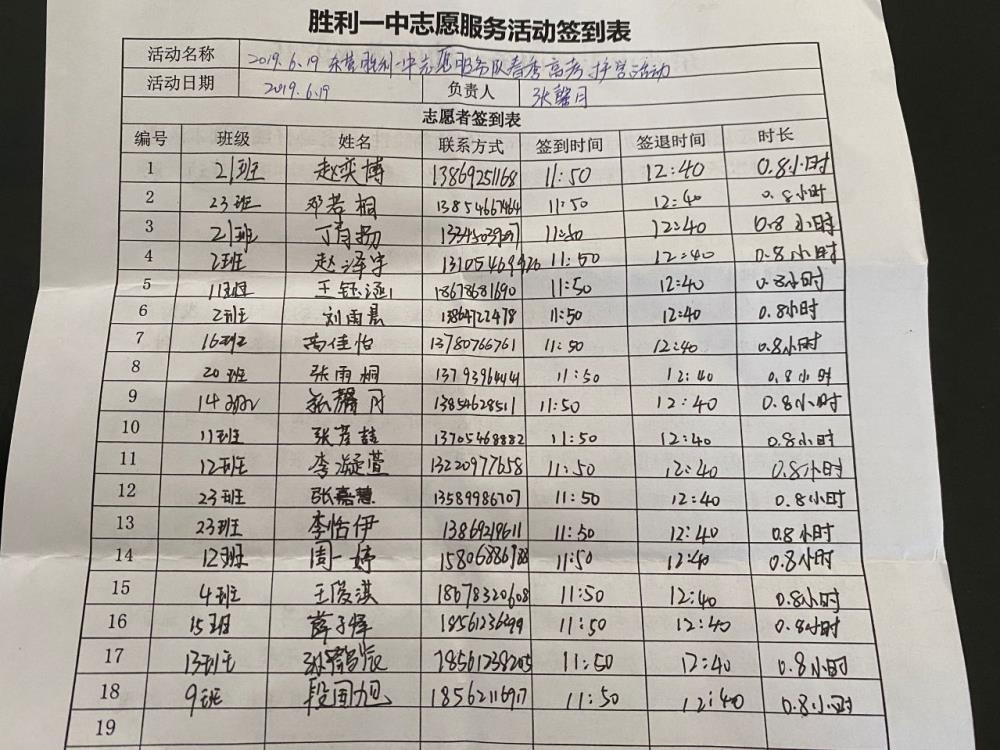 胜利一中志愿服务活动签到表
活动名称 2019.6.19 东营胜利一中志愿服务队春季高考护学活动
活动日期 2019.6.19 负责人 张馨月
志愿者签到表
编号 班级 姓名 联系方式 签到时间 签退时间 时长
1 21班 赵奕博 13869251168 11:50 12:40 0.8小时
2 23班 邓若桐 11:50 12:40 0.8小时
3 21班 丁肖扬 11:50 12:40 0.8小时
4 2班 赵泽宇 13105469926 11:50 12:40 0.8小时
5 11班 王钰涵 18678681690 11:50 12:40 0.8小时
6 2班 刘雨晨 13864722478 11:50 12:40 0.8小时
7 16班 高佳怡 13780766761 11:50 12:40 0.8小时
8 20班 张雨桐 13793964141 11:50 12:40 0.8小时
9 14班 张馨月 13854628511 11:50 12:40 0.8小时
10 11班 张彦喆 13705468882 11:50 12:40 0.8小时
11 12班 李凝萱 13220977658 11:50 12:40 0.8小时
12 23班 张嘉慧 13589986707 11:50 12:40 0.8小时
13 23班 李怡伊 13869219611 11:50 12:40 0.8小时
14 12班 周一婷 15806886988 11:50 12:40 0.8小时
15 4班 王俊淇 18678320608 11:50 12:40 0.8小时
16 15班 薛子怿 18561236299 11:50 12:40 0.8小时
17 13班 18561239205 11:50 12:40 0.8小时
18 9班 段国旭 18562116917 11:50 12:40 0.8小时
19